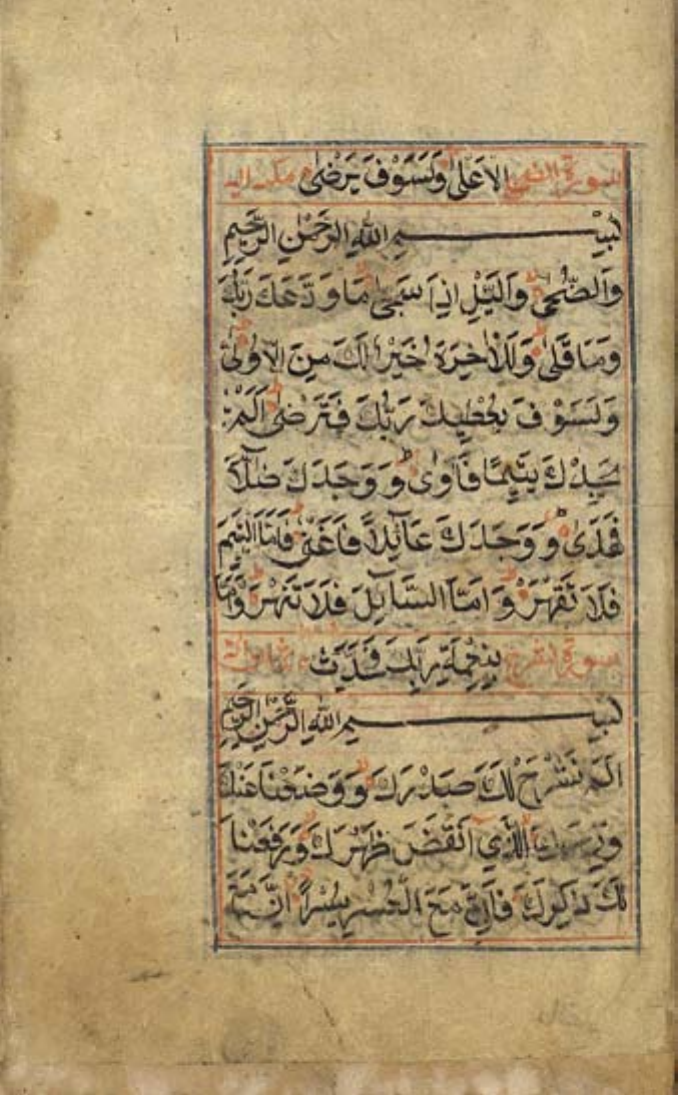 سورة الضحى الاَعلىٰ وَلَسَوْفَ يَرْضىٰ مكية
بِسْــــــمِ اللهِ الرَّحْمٰنِ الرَّحِيْمِ
وَالضُّحىٰ وَالَّيْلِ اِذَا سَجىٰ مَا وَدَّعَكَ رَبُّكَ
وَمَا قَلىٰ وَلَلْاٰخِرَةُ خَيْرٌ لَكَ مِنَ الْاُوْلىٰ
وَلَسَوْفَ يُعْطِيْكَ رَبُّكَ فَتَرْضىٰ اَلَمْ
يَجِدْكَ يَتِيْمًا فَاٰوىٰ وَوَجَدَكَ ضَآلًّا
فَهَدىٰ وَوَجَدَكَ عَآئِلًا فَاَغْنىٰ فَاَمَّا الْيَتِيْمَ
فَلَا تَقْهَرْ وَاَمَّا السَّآئِلَ فَلَا تَنْهَرْ وَاَمَّا
سورة بِنِعْمَةِ رَبِّكَ فَحَدِّثْ
بِسْــــــمِ اللهِ الرَّحْمٰنِ الرَّحِيْمِ
اَلَمْ نَشْرَحْ لَكَ صَدْرَكَ وَوَضَعْنَا عَنْكَ
وِزْرَكَ الَّذِيْ اَنْقَضَ ظَهْرَكَ وَرَفَعْنَا
لَكَ ذِكْرَكَ فَاِنَّ مَعَ الْعُسْرِ يُسْرًا اِنَّ مَعَ